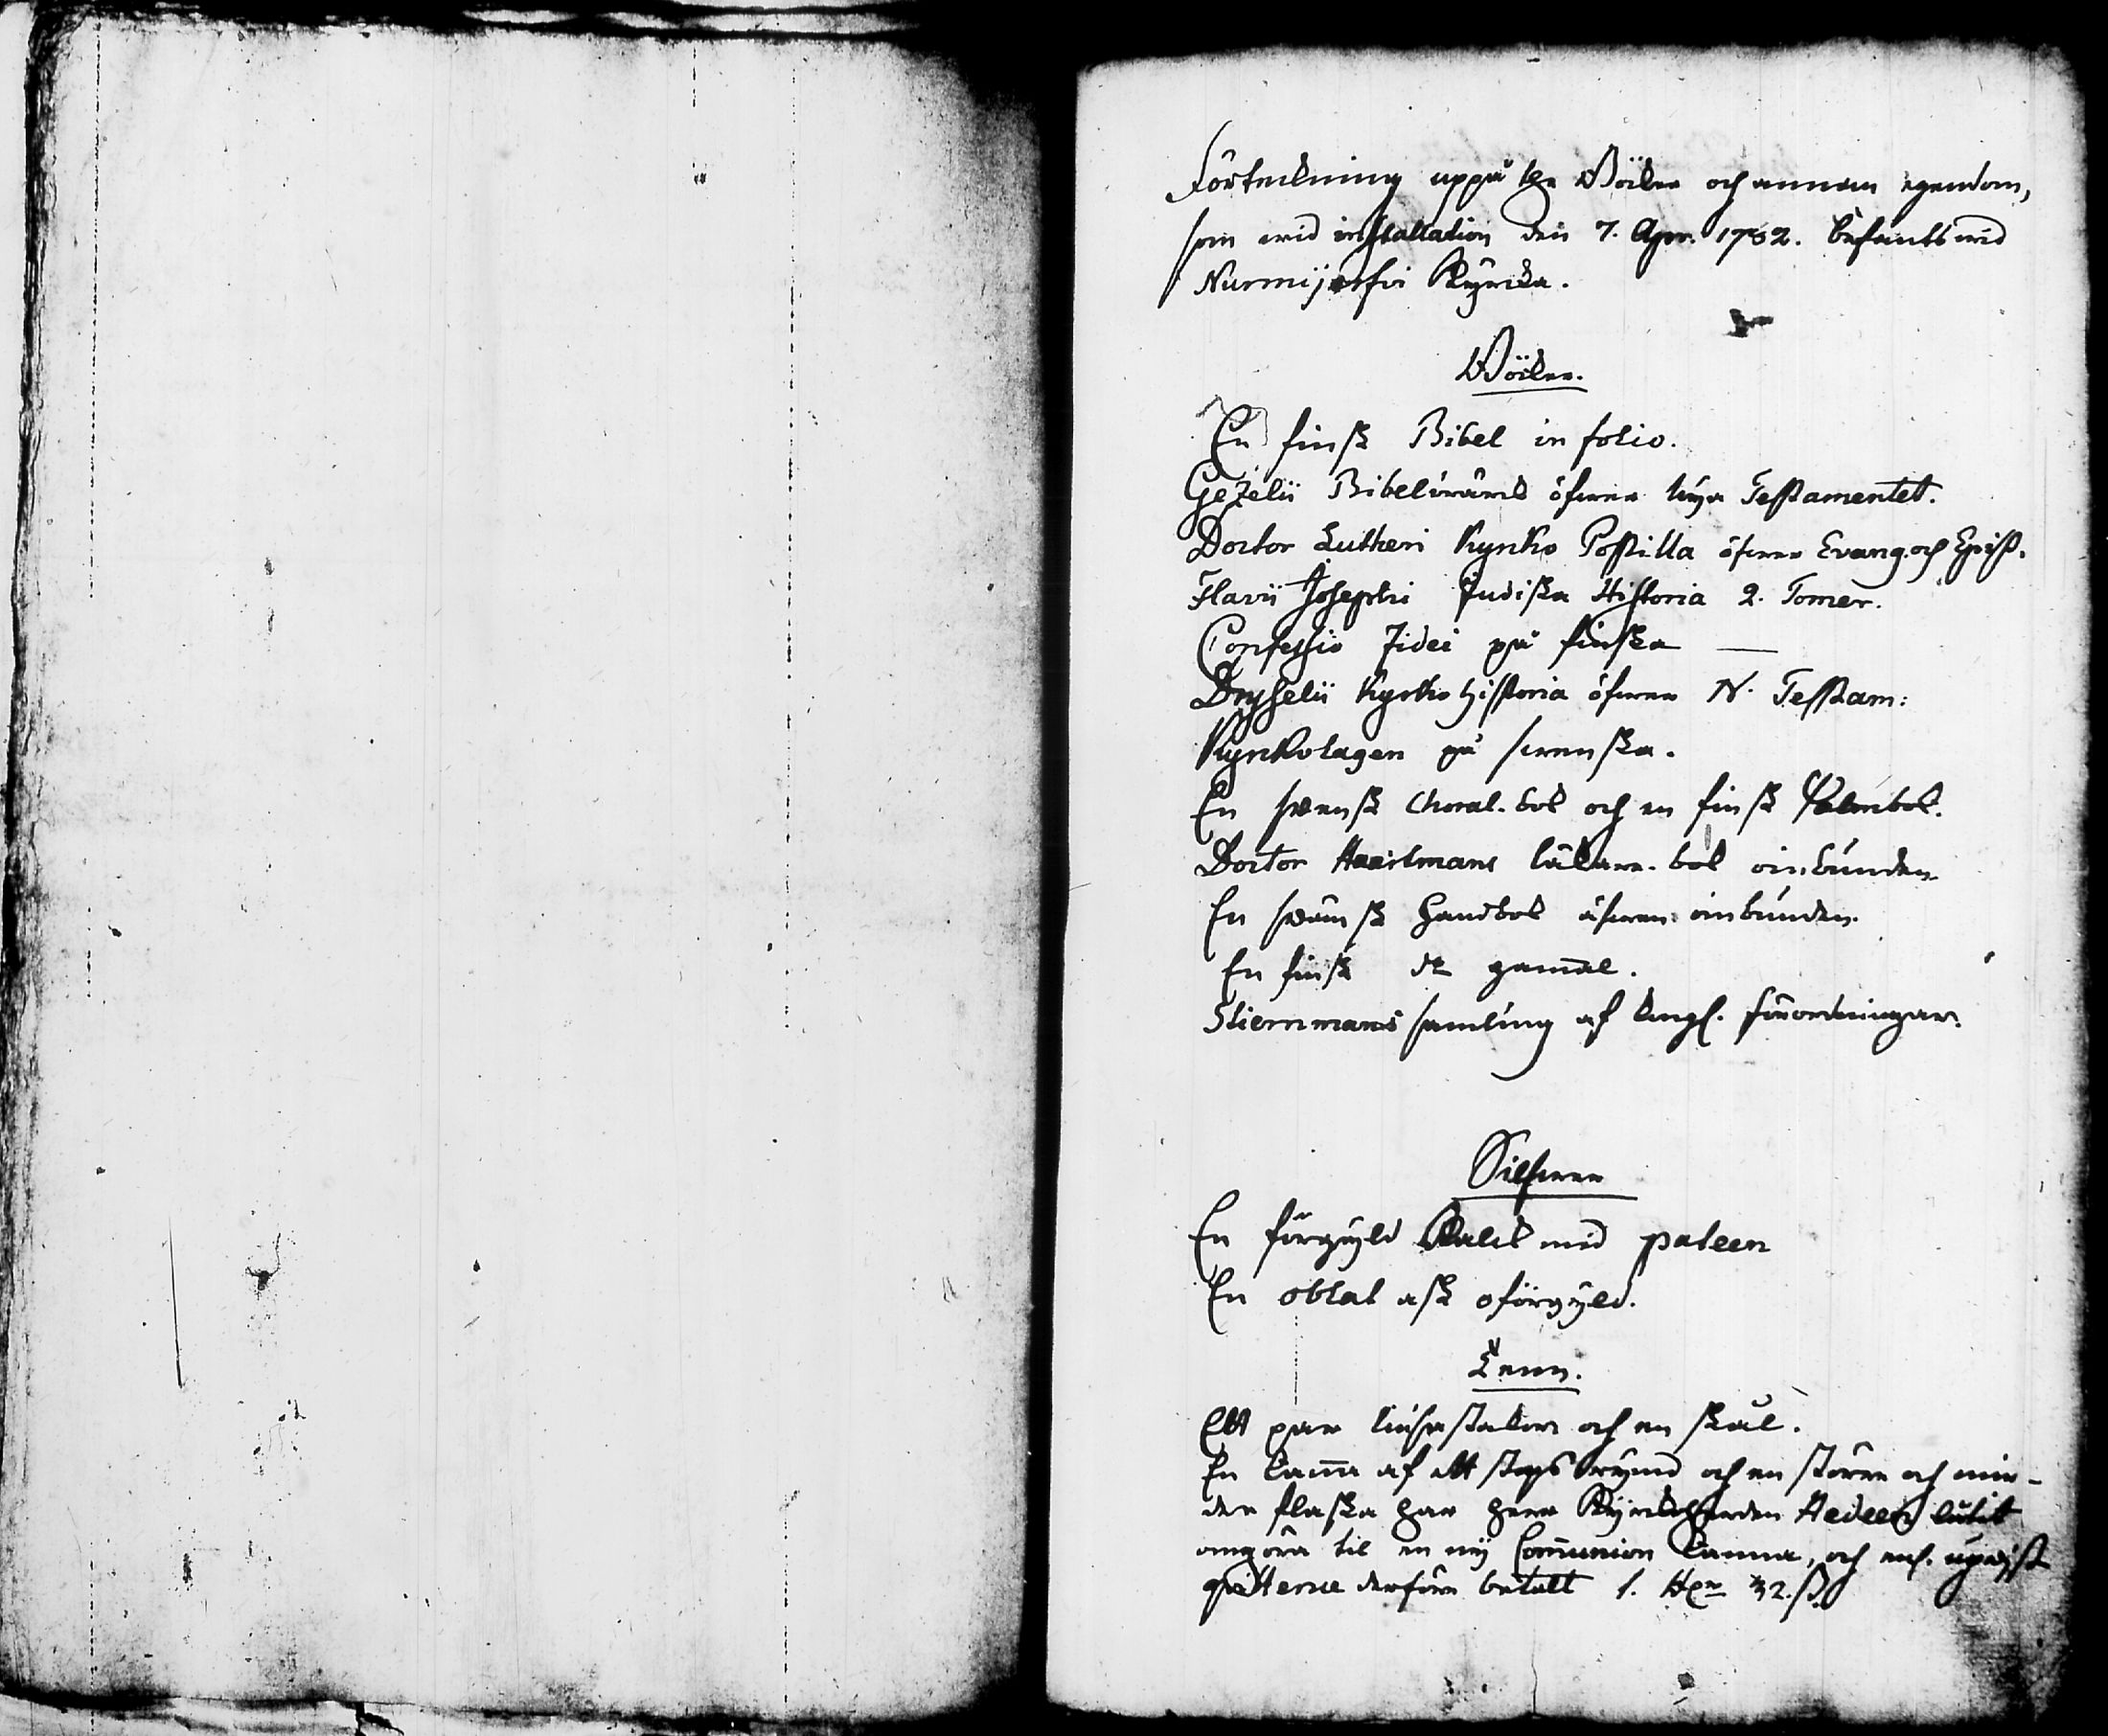 Förteckning uppå the Böcker och annan egendom,
som wid installation den 7. Apr. 1782. befants wid
Nurmijerfvi Kyrcka.
Böcker.
En finsk Bibel in folio.
Gezelii Bibelwärck öfwer nya Testamentet.
Doctor Lutheri Kyrko Postilla öfwer Evang. och Epist.
Flavii Josephi Judiska Historia 2. Tomer.
Confessio Fidei på finska
Dryselii Kyrko historia öfwer N. Testam:
Kyrkolagen på swenska.
En swensk Choral-bok och en finsk Psalmbok.
Doctor Haartmans läkare-bok oinbunden
En swänsk Handbok äfwen oinbunden.
En finsk dto gamal.
Stiernmans samling af kongl. förordningar.
Silfwer
En förgyld Kalck med pateen
En oblat ask oförgyld.
Tenn.
Ett par liusstakar och en skål.
En Canna af ett stops rymd och en större och min-
dre flaska har herr Kyrckoherden Hedeen låtit
omgöra til en ny Communion Canna, och enl. upwist
qvittence derföre betalt 1. 32. s.